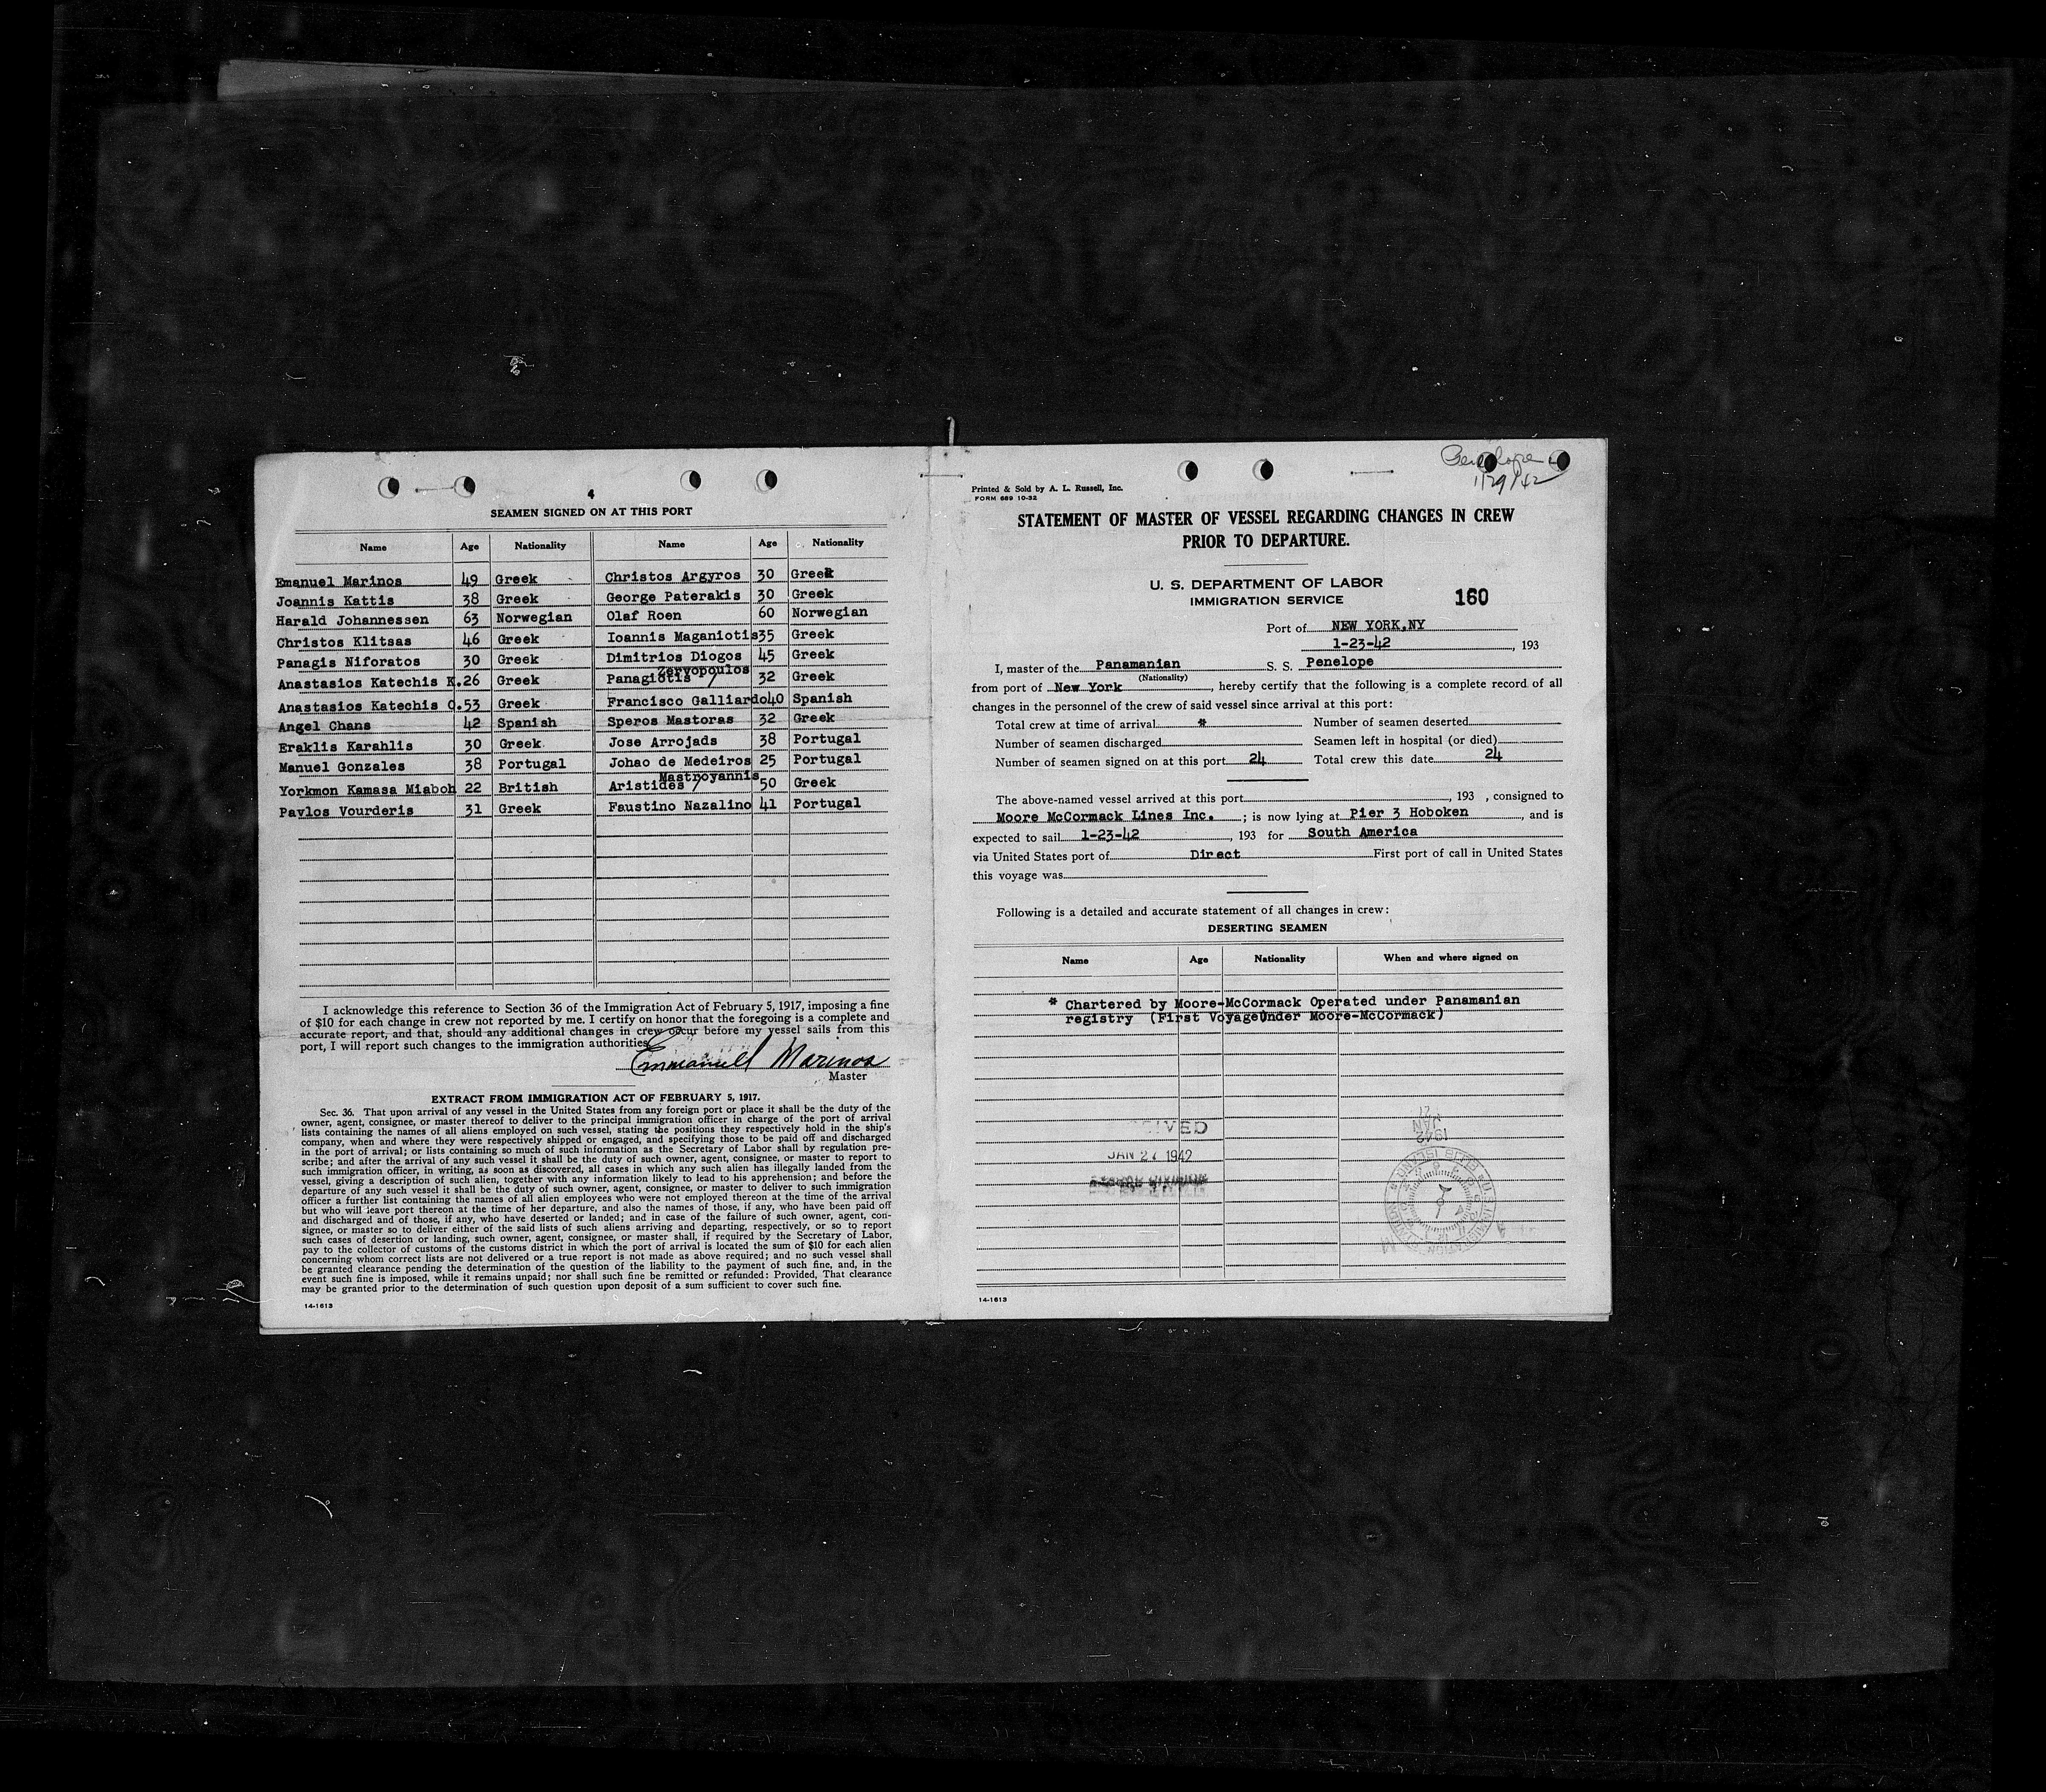 4
SEAMEN SIGNED ON AT THIS PORT
Name Age Nationality Name Age Nationality
Emanuel Marinos 49 Greek Christos Argyros 30 Greek
Joannis Kattis 38 Greek George Paterakis 30 Greek
Harald Johannessen 63 Norwegian Olaf Roen 60 Norwegian
Christos Klitsas 46 Greek Ioannis Maganiotis 35 Greek
Panagis Niforatos 30 Greek Dimitrios Diogos 45 Greek
Anastasios Katechis K. 26 Greek Panagiotis / Zervopoulos 32 Greek
Anastasios Katechis C. 53 Greek Francisco Galliardo 40 Spanish
Angel Chans 42 Spanish Speros Mastoras 32 Greek
Eraklis Karahlis 30 Greek Jose Arrojads 38 Portugal
Manuel Gonzales 38 Portugal Johao de Medeiros 25 Portugal
Yorkmon Kamasa Miaboh 22 British Aristides / Mastroyannis 50 Greek
Pavlos Vourderis 31 Greek Faustino Nazalino 41 Portugal
I acknowledge this reference to Section 36 of the Immigration Act of February 5, 1917, imposing a fine
of $10 for each change in crew not reported by me. I certify on honor that the foregoing is a complete and
accurate report, and that, should any additional changes in crew occur before my vessel sails from this
port, I will report such changes to the immigration authorities.
Emmanuell Marinos
Master
EXTRACT FROM IMMIGRATION ACT OF FEBRUARY 5, 1917.
Sec. 36. That upon arrival of any vessel in the United States from any foreign port or place it shall be the duty of the
owner, agent, consignee, or master thereof to deliver to the principal immigration officer in charge of the port of arrival
lists containing the names of all aliens employed on such vessel, stating the positions they respectively hold in the ship's
company, when and where they were respectively shipped or engaged, and specifying those to be paid off and discharged
in the port of arrival; or lists containing so much of such information as the Secretary of Labor shall by regulation pre-
scribe; and after the arrival of any such vessel it shall be the duty of such owner, agent, consignee, or master to report to
such immigration officer, in writing, as soon as discovered, all cases in which any such alien has illegally landed from the
vessel, giving a description of such alien, together with any information likely to lead to his apprehension; and before the
departure of any such vessel it shall be the duty of such owner, agent, consignee, or master to deliver to such immigration
officer a further list containing the names of all alien employees who were not employed thereon at the time of the arrival
but who will leave port thereon at the time of her departure, and also the names of those, if any, who have been paid off
and discharged and of those, if any, who have deserted or landed; and in case of the failure of such owner, agent, con-
signee, or master so to deliver either of the said lists of such aliens arriving and departing, respectively, or so to report
such cases of desertion or landing, such owner, agent, consignee, or master shall, if required by the Secretary of Labor,
pay to the collector of customs of the customs district in which the port of arrival is located the sum of $10 for each alien
concerning whom correct lists are not delivered or a true report is not made as above required; and no such vessel shall
be granted clearance pending the determination of the question of the liability to the payment of such fine, and, in the
event such fine is imposed, while it remains unpaid; nor shall such fine be remitted or refunded: Provided, That clearance
may be granted prior to the determination of such question upon deposit of a sum sufficient to cover such fine.
14-1613
Penelope
1/29/42
Printed & Sold by A. L. Russell, Inc.
FORM 689 10-32
STATEMENT OF MASTER OF VESSEL REGARDING CHANGES IN CREW
PRIOR TO DEPARTURE.
U. S. DEPARTMENT OF LABOR
IMMIGRATION SERVICE
160
Port of NEW YORK,NY
1-23-42, 193
I, master of the Panamanian S. S. Penelope
(Nationality)
from port of New York, hereby certify that the following is a complete record of all
changes in the personnel of the crew of said vessel since arrival at this port:
Total crew at time of arrival * Number of seamen deserted
Number of seamen discharged Seamen left in hospital (or died)
Number of seamen signed on at this port 24 Total crew this date 24
The above-named vessel arrived at this port , 193 , consigned to
Moore McCormack Lines Inc. ; is now lying at Pier 3 Hoboken , and is
expected to sail 1-23-42 , 193 for South America
via United States port of Direct First port of call in United States
this voyage was
Following is a detailed and accurate statement of all changes in crew:
DESERTING SEAMEN
Name Age Nationality When and where signed on
* Chartered by Moore-McCormack Operated under Panamanian
registry (First Voyage Under Moore-McCormack)
JAN 27 1942
14-1613